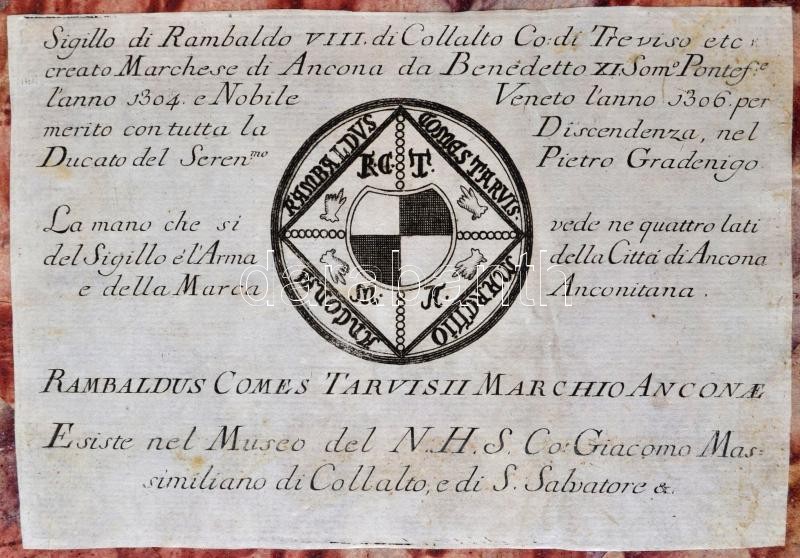 Sigillo di Rambaldo VIII. di Collalto Co: di Treviso etc:
creato Marchese di Ancona da Benedetto XI Som.o Pontef.ce
l'anno 1304. e Nobile Veneto l'anno 1306. per
merito con tutta la Discendenza, nel
Ducato del Seren.mo Pietro Gradenigo
RAMBALDUS COMES TARVIS.
R C T.
La mano che si vede ne quattro lati
del Sigillo é l'Arma della Cittá di Ancona
e della Marca Anconitana.
M. A.
MARCHIO ANCONÆ
databanth
RAMBALDUS COMES TARVISII MARCHIO ANCONÆ
Esiste nel Museo del N. H. S. Co: Giacomo Mas=
similiano di Collalto, e di S. Salvatore &.